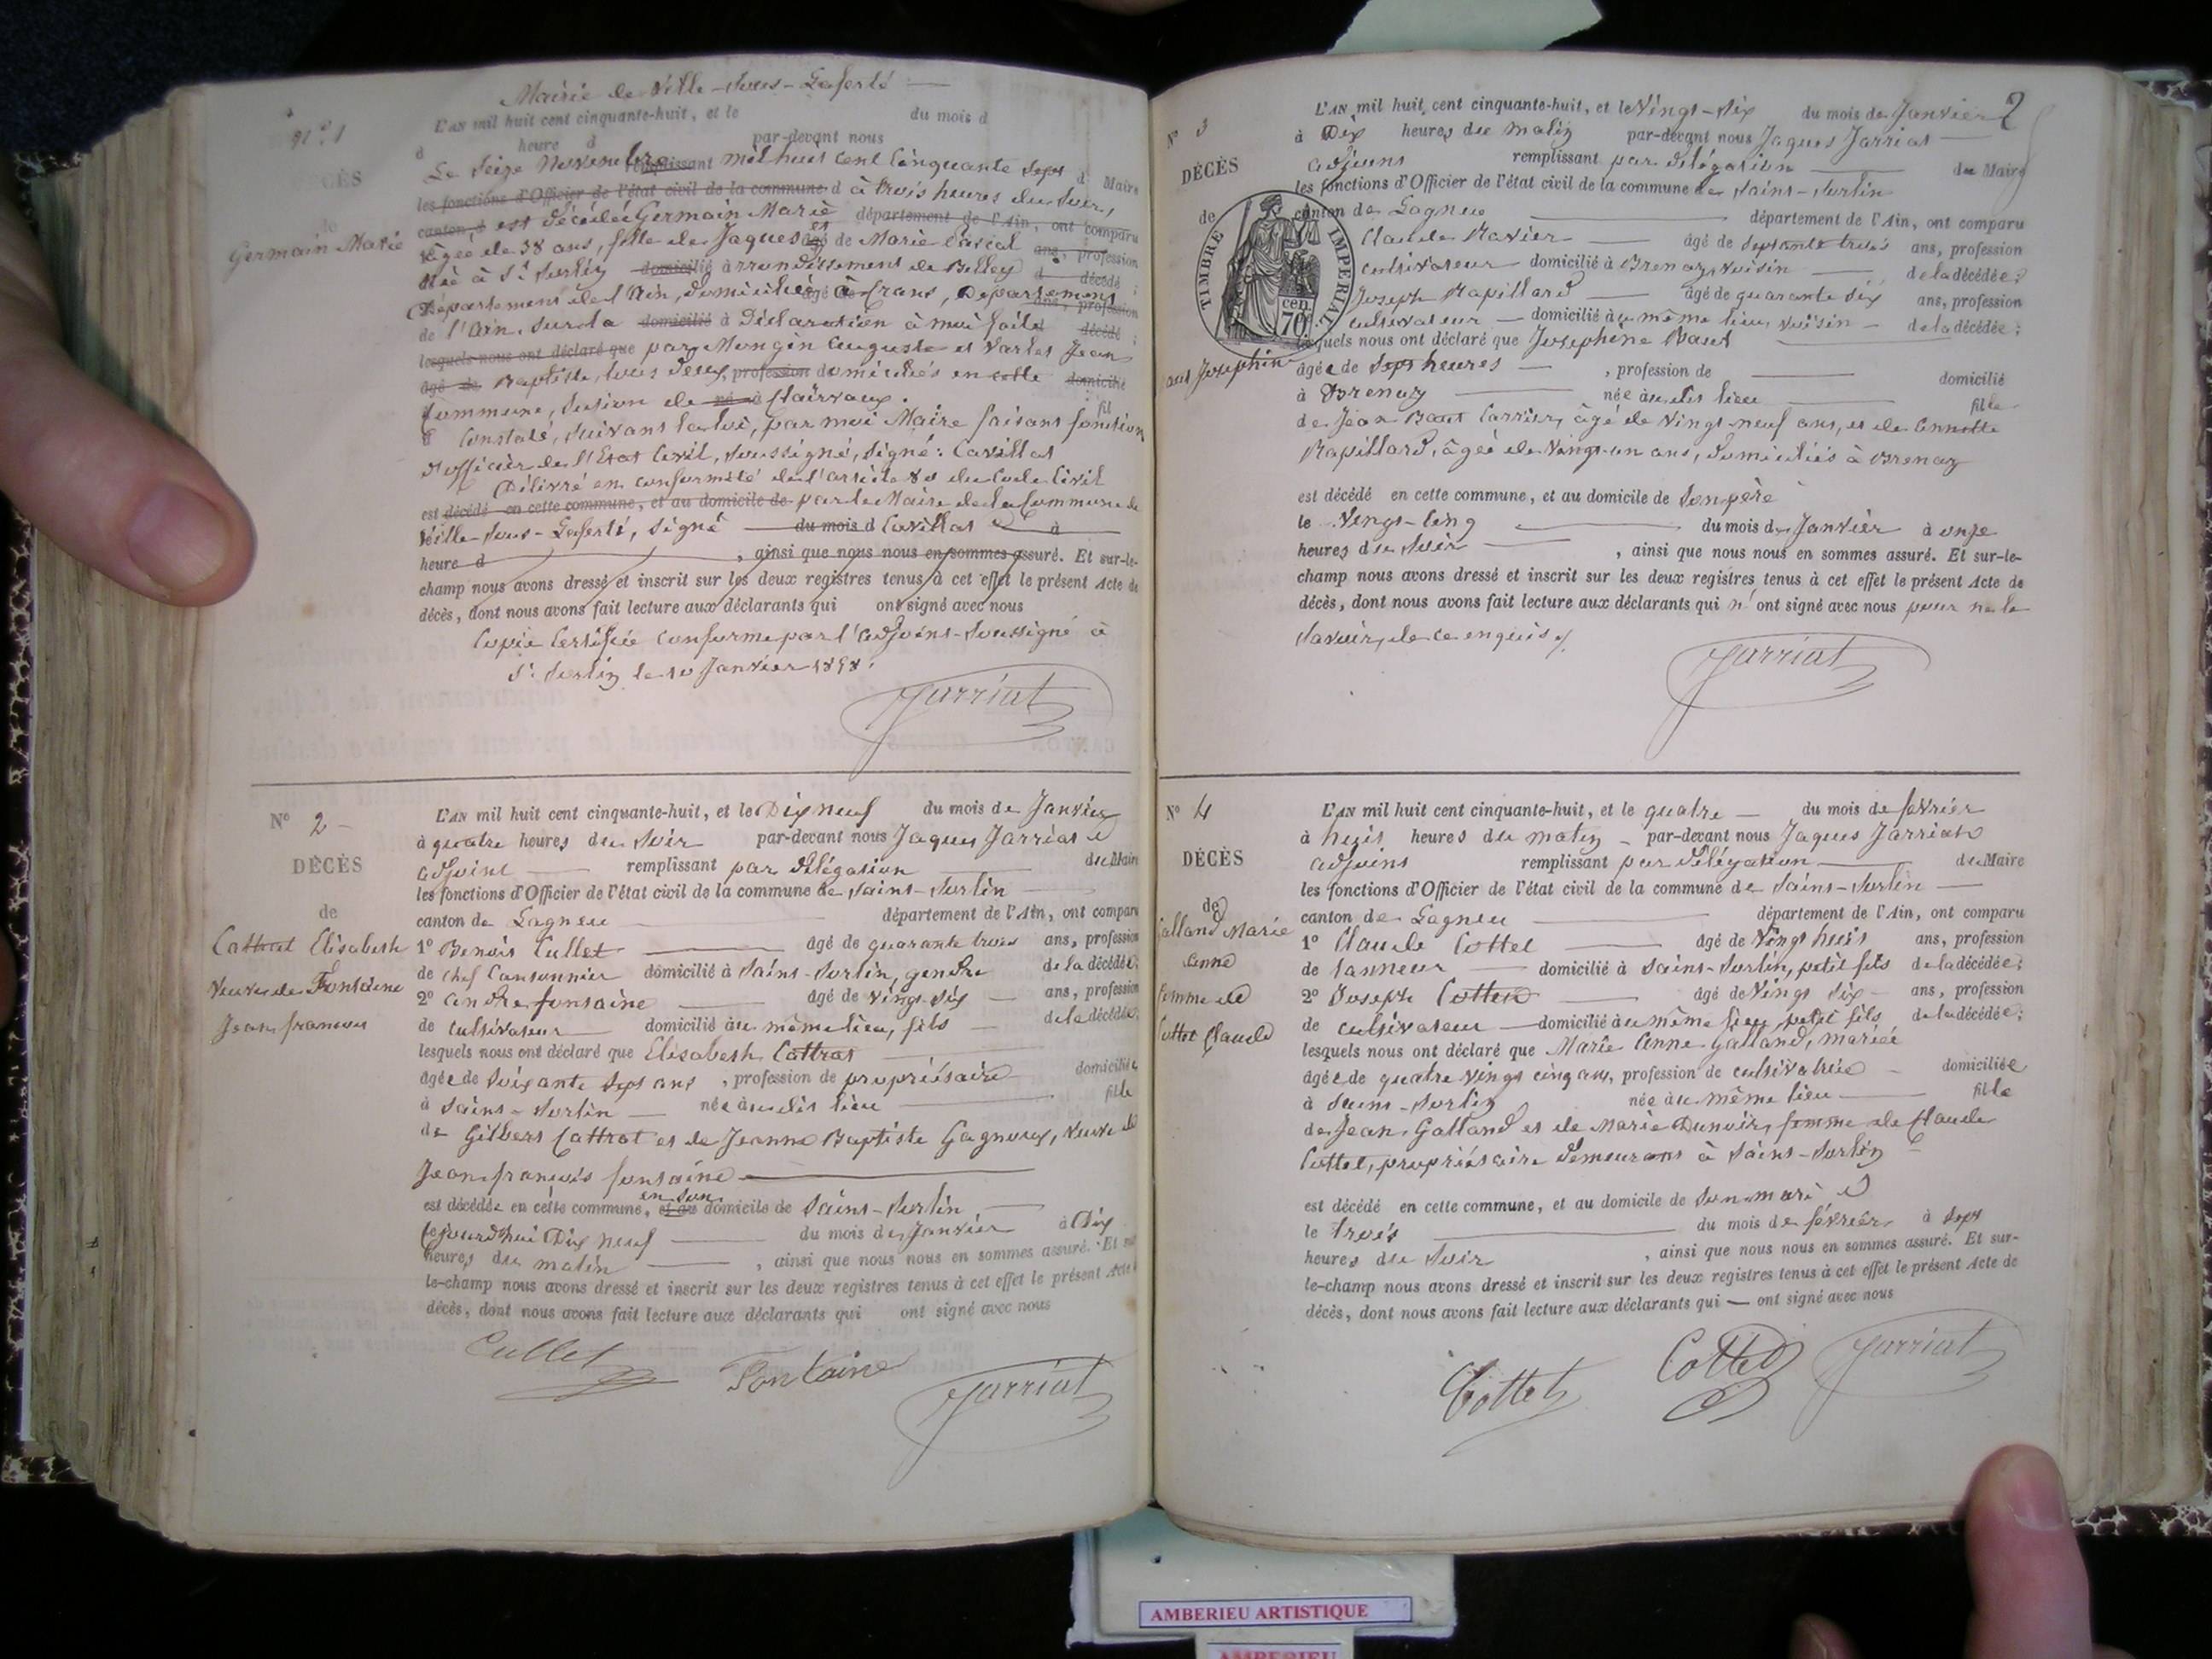 Mairie de Ville-sous-Laferté
N° 1
L'AN mil huit cent cinquante-huit, et le du mois d
heure d par-devant nous
Le seize Novembre remplissant mil huit cent cinquante sept d Maire
DÉCÈS
les fonctions d'Officier de l'état civil de la commune d à trois heures du soir,
canton d est décédée Germain Marie département de l'Ain, ont comparu
de
Germain Marie
âgée de 38 ans, fille de Jaques et de Marie ans, profession
Née à St Sorlin domicilié arrondissement de Belley d décédé ;
Département de l'Ain, domiciliée à Département ans, profession
de l'Ain. Sur la domicilié à Déclaration à moi faite décédé ;
lesquels nous ont déclaré que par Mongin Auguste et Varlet Jean
âgé de Baptiste, tous deux, profession domiciliés en cette domicilié
Commune, section de né à Clairvaux. fil
Constaté, suivant la loi, par moi Maire faisant fonction
d'officier de l'Etat Civil, soussigné, signé : Cavillat
Délivré en conformité de l'article 80 du Code Civil
est décédé en cette commune, et au domicile de par le Maire de la Commune de
Ville-sous-Laferté, signé du mois d Cavillat à
heure d , ainsi que nous nous en sommes assuré. Et sur-le-
champ nous avons dressé et inscrit sur les deux registres tenus à cet effet le présent Acte de
décès, dont nous avons fait lecture aux déclarants qui ont signé avec nous
Copie Certifiée conforme par l'adjoint soussigné à
St Sorlin le 10 Janvier 1858.
Jarriat
N° 2
DÉCÈS
de
Cattrat Elisabeth
Veuve de Fontaine
Jean françois
L'AN mil huit cent cinquante-huit, et le Dix neuf du mois de Janvier
à quatre heures du soir par-devant nous Jaques Jarriat
adjoint remplissant par délégation du Maire
les fonctions d'Officier de l'état civil de la commune de Saint-Sorlin
canton de Lagnieu département de l'Ain, ont comparu
1° Benoit Cullet âgé de quarante trois ans, profession
de chef Cantonnier domicilié à Saint-Sorlin, gendre de la décédée;
2° André fontaine âgé de vingt-six ans, profession
de cultivateur domicilié au même lieu, fils de la décédée;
lesquels nous ont déclaré que Elisabeth Cattrat
âgée de soixante sept ans , profession de propriétaire domiciliée
à Saint-Sorlin née audit lieu fille
de Gilbert Cattrat et de Jeanne Baptiste Gagnoux, veuve de
Jean françois fontaine
est décédée en cette commune, et au en son domicile de Saint-Sorlin
Cejourd'hui Dix neuf du mois de Janvier à Dix
heures du matin , ainsi que nous nous en sommes assuré. Et sur
le-champ nous avons dressé et inscrit sur les deux registres tenus à cet effet le présent Acte
décès, dont nous avons fait lecture aux déclarants qui ont signé avec nous
Cullet Fontaine
Jarriat
2
N° 3
DÉCÈS
de
Josephine
L'AN mil huit cent cinquante-huit, et le Vingt-six du mois de Janvier
à Dix heures du matin par-devant nous Jaques Jarriat
adjoint remplissant par délégation du Maire
les fonctions d'Officier de l'état civil de la commune de Saint-Sorlin
canton de Lagnieu département de l'Ain, ont comparu
TIMBRE IMPERIAL
cen
70
Claude Ravier âgé de septante trois ans, profession
cultivateur domicilié à Brenaz, voisin de la décédée;
Joseph Rapillard âgé de quarante six ans, profession
cultivateur domicilié au même lieu, voisin de la décédée;
lesquels nous ont déclaré que Josephine
âgée de sept heures , profession de domicilié
à Brenaz née audit lieu fille
de Jean Carrier, âgé de Vingt-neuf ans, et de Annette
Rapillard, âgée de Vingt-un ans, domiciliés à Brenaz
est décédé en cette commune, et au domicile de son père
le Vingt-cinq du mois de Janvier à onze
heures du soir , ainsi que nous nous en sommes assuré. Et sur-le-
champ nous avons dressé et inscrit sur les deux registres tenus à cet effet le présent Acte de
décès, dont nous avons fait lecture aux déclarants qui n'ont signé avec nous pour ne le
savoir, de ce enquis.
Jarriat
N° 4
DÉCÈS
de
Galland Marie
Anne
femme de
Cottet Claude
L'AN mil huit cent cinquante-huit, et le quatre du mois de février
à huit heures du matin par-devant nous Jaques Jarriat
adjoint remplissant par délégation du Maire
les fonctions d'Officier de l'état civil de la commune de Saint-Sorlin
canton de Lagnieu département de l'Ain, ont comparu
1° Claude Cottet âgé de Vingt huit ans, profession
de tanneur domicilié à Saint-Sorlin, petit fils de la décédée;
2° Joseph Cottet âgé de Vingt six ans, profession
de cultivateur domicilié au même lieu, petit fils de la décédée;
lesquels nous ont déclaré que Marie Anne Galland, mariée
âgée de quatre vingt cinq ans, profession de cultivatrice domiciliée
à Saint-Sorlin née au même lieu fille
de Jean Galland et de Marie Dunoir, femme de Claude
Cottet, propriétaire demeurant à Saint-Sorlin
est décédé en cette commune, et au domicile de son mari
le trois du mois de février à sept
heures du soir , ainsi que nous nous en sommes assuré. Et sur-
le-champ nous avons dressé et inscrit sur les deux registres tenus à cet effet le présent Acte de
décès, dont nous avons fait lecture aux déclarants qui ont signé avec nous
Cottet Cottet Jarriat
AMBERIEU ARTISTIQUE
AMBERIEU